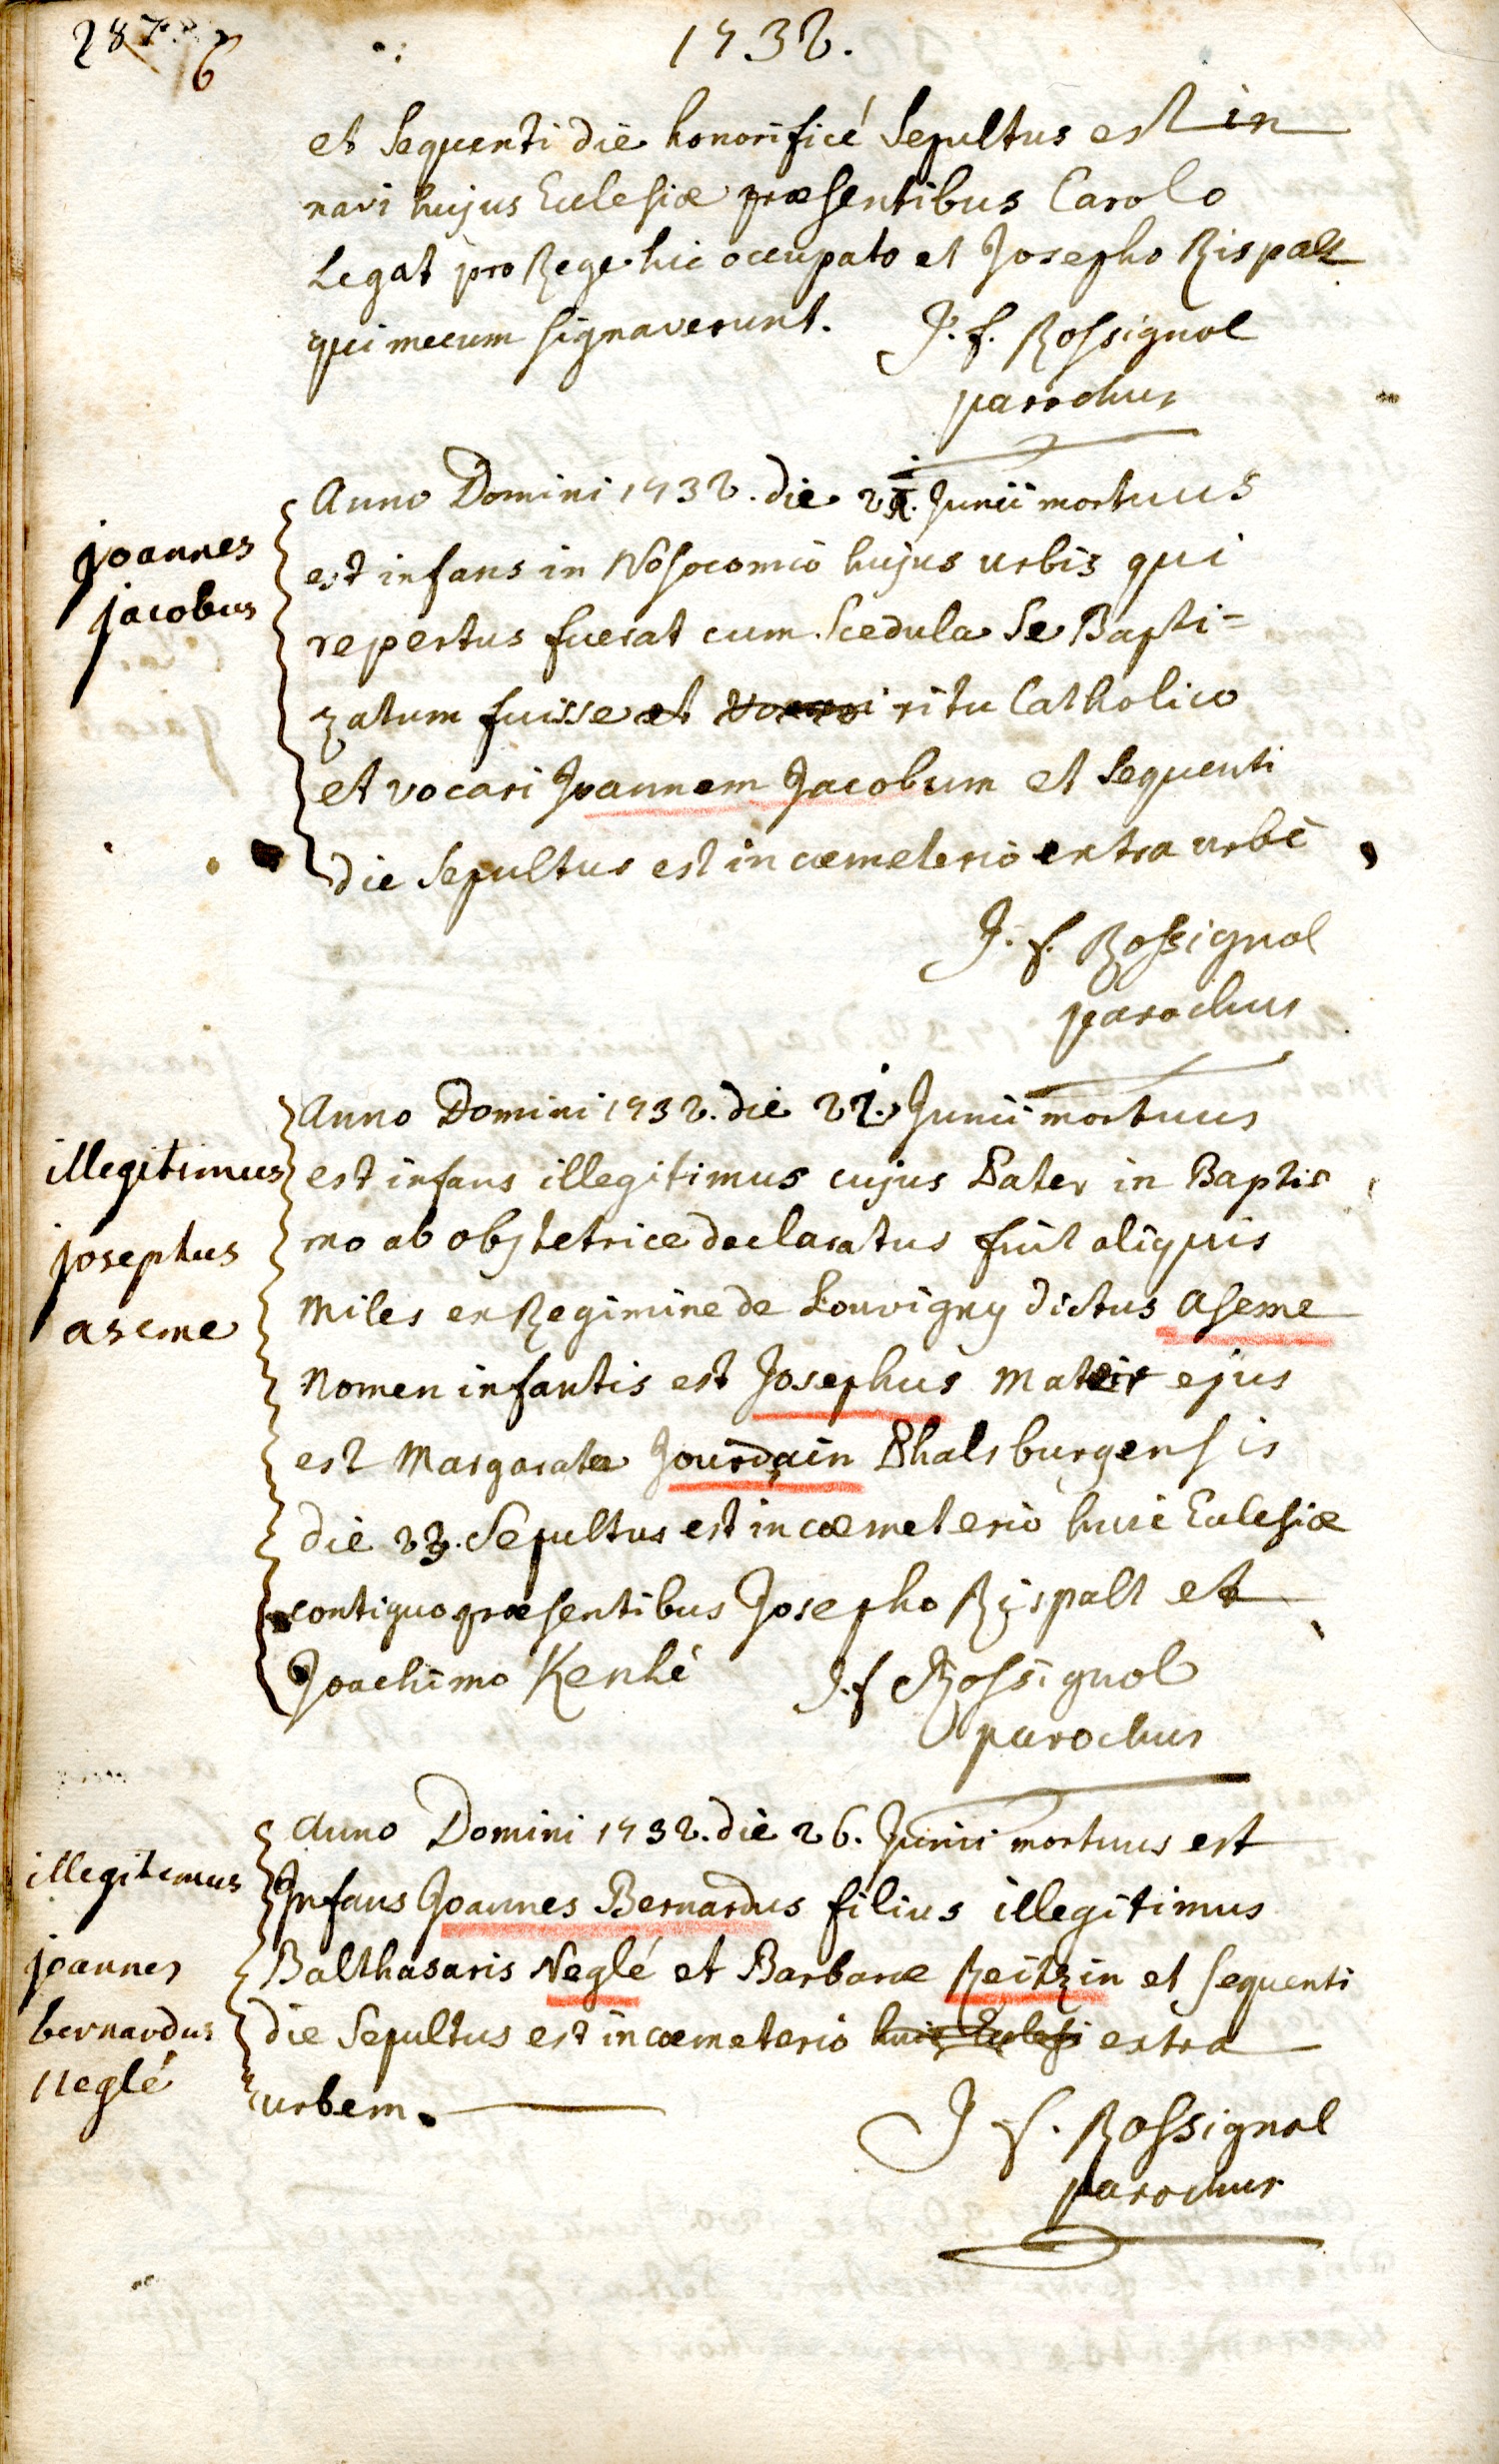 287 6
1732.
et sequenti die honorificé sepultus est in
navi hujus Ecclesiæ præsentibus Carolo
Legat pro Rege hic occupato et Josepho Rispalt
qui mecum signaverunt. J. f. Rossignol
parochus
Anno Domini 1732. die 21. Junii mortuus
joannes
jacobus
est infans in Nosocomio hujus urbis qui
repertus fuerat cum scedula se Bapti=
zatum fuisse et ritu Catholico
et vocari Joannem Jacobum et sequenti
die sepultus est in cœmeterio extra urbē
J. f. Rossignol
parochus
Anno Domini 1732. die 21. Junii mortuus
illegitimus
josephus
aseme
est infans illegitimus cujus Pater in Baptis
mo ab obstetrice declaratus fuit aliquis
Miles ex Regimine de Louvigny dictus aseme
Nomen infantis est Josephus Mater ejus
est Margarata Jourdain Phalsburgensis
die 23. Sepultus est in cœmeterio huic Ecclesiæ
contiguo præsentibus Josepho Rispalt et
Joachimo Kenlé J. f Rossignol
parochus
Anno Domini 1732. die 26. Junii mortuus est
illegitimus
joannes
bernardus
Neglé
Infans Joannes Bernardus filius illegitimus
Balthasaris Neglé et Barbaræ Reitzin et sequenti
die sepultus est in cœmeterio huic Eclesi extra
urbem.
J f. Rossignol
parochus